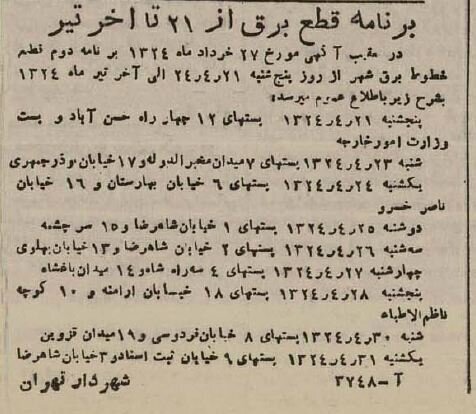 برنامه قطع برق از ۲۱ تا آخر تیر
در عقیب آگهی مورخ ۲۷ خرداد ماه ۱۳۲۴ برنامه دوم قطع
خطوط برق شهر از روز پنج‌شنبه ۲۱ر۴ر۲۴ الی آخر تیر ماه ۱۳۲۴
بشرح زیر باطلاع عموم میرسد:
پنجشنبه ۲۱ر۴ر۱۳۲۴ پستهای ۱۲ چهار راه حسن آباد و پست
وزارت امور خارجه
شنبه ۲۳ر۴ر۱۳۲۴ پستهای ۷ میدان مخبرالدوله و ۱۷ خیابان بوذرجمهری
یکشنبه ۲۴ر۴ر۱۳۲۴ پستهای ۶ خیابان بهارستان و ۱۶ خیابان
ناصر خسرو
دوشنبه ۲۵ر۴ر۱۳۲۴ پستهای ۱ خیابان شاهرضا و ۱۵ سر چشمه
سه‌شنبه ۲۶ر۴ر۱۳۲۴ پستهای ۲ خیابان شاهرضا و ۱۳ خیابان پهلوی
چهارشنبه ۲۷ر۴ر۱۳۲۴ پستهای ۴ سه راه شاه و ۱۴ میدان باغشاه
پنجشنبه ۲۸ر۴ر۱۳۲۴ پستهای ۱۸ خیابان ارامنه و ۱۰ کوچه
ناظم‌الاطباء
شنبه ۳۰ر۴ر۱۳۲۴ پستهای ۸ خیابان فردوسی و ۱۹ میدان قزوین
یکشنبه ۳۱ر۴ر۱۳۲۴ پستهای ۹ خیابان ثبت اسناد و ۳ خیابان شاهرضا
آ-۳۷۴۸ شهردار تهران